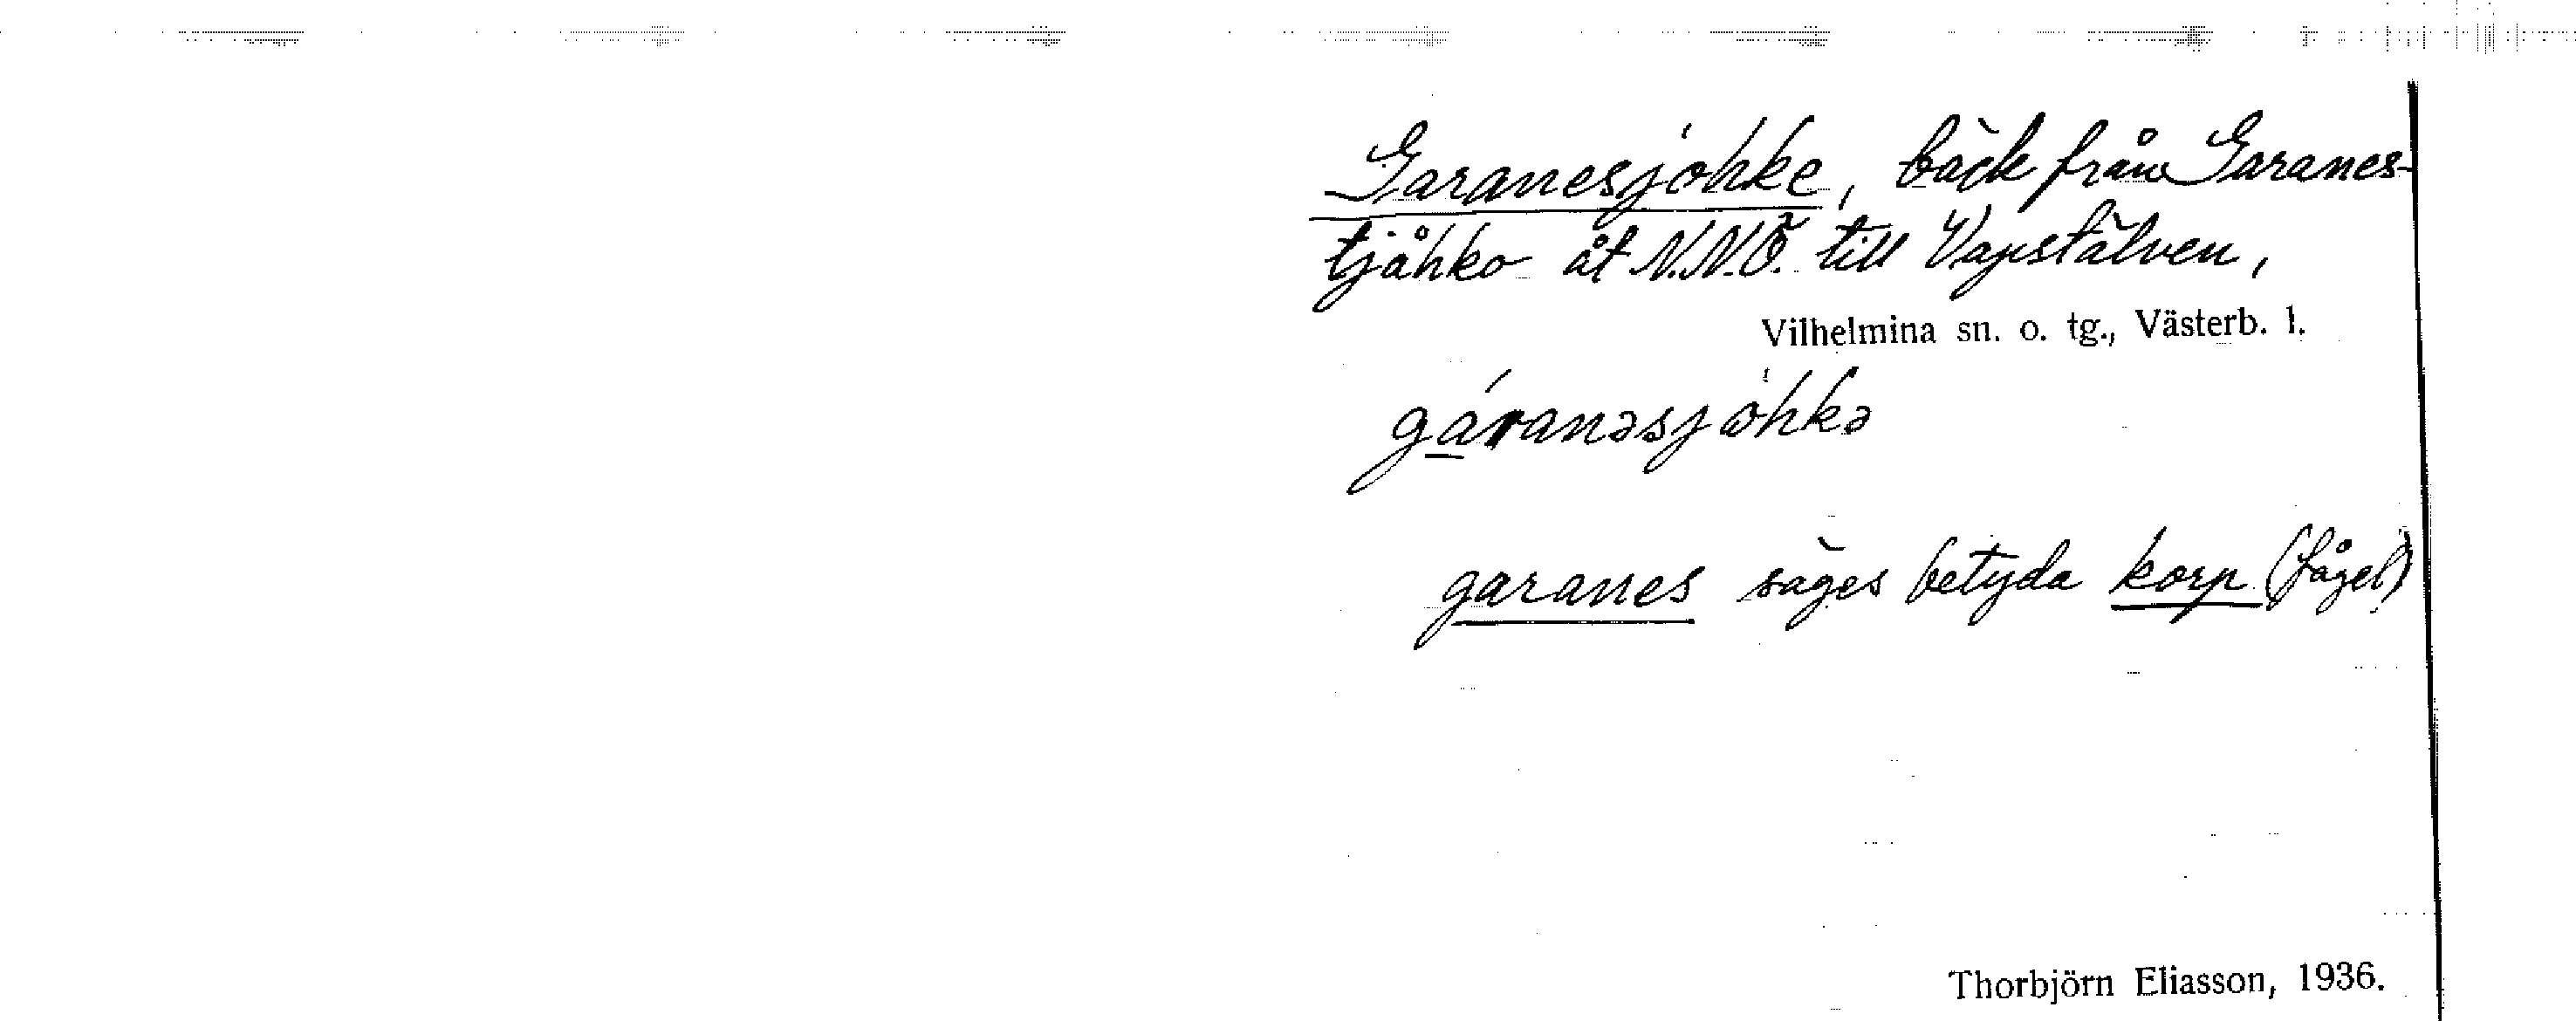 Garanesjohke, bäck från Garanes-
tjåhko åt N.N.Ö. till Vapstälven,
Vilhelmina sn. o. tg., Västerb. l.
gáranəsjòhkə
garanes säges betyda korp (fågel)
Thorbjörn Eliasson, 1936.